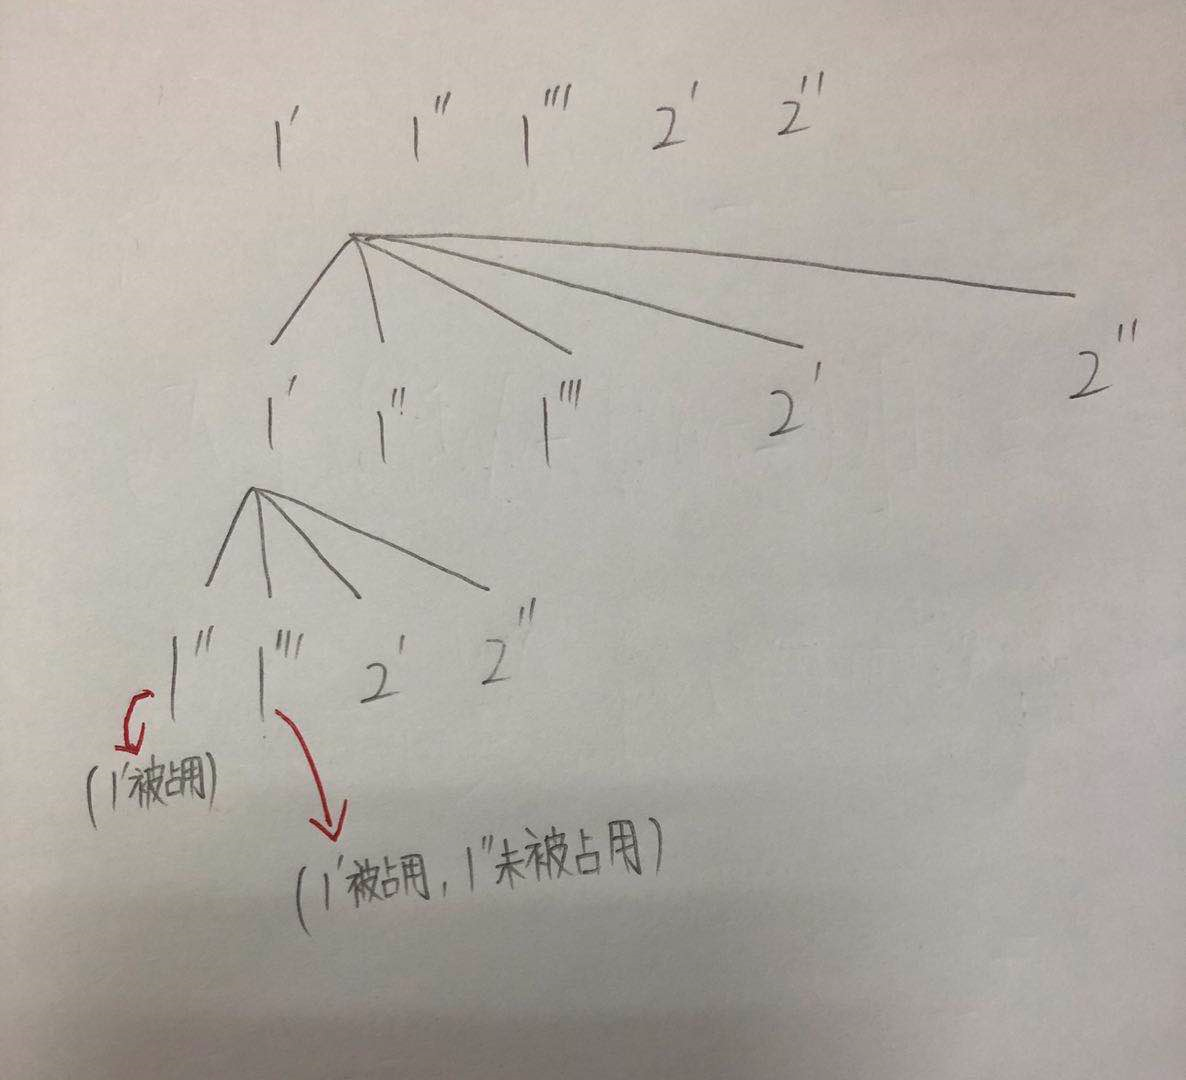 1' 1'' 1''' 2' 2''
1' 1'' 1''' 2' 2''
1'' 1''' 2' 2''
(1'被占用)
(1'被占用,1''未被占用)